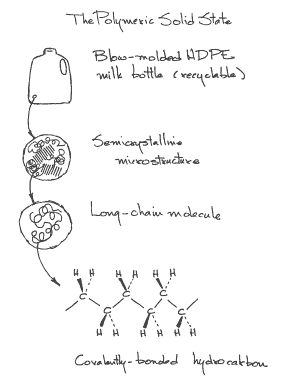 The Polymeric Solid State
Blow-molded HDPE
milk bottle (recyclable)
Semicrystalline
microstructure
Long-chain molecule
H H H H H H
C C C C C C
H H H H H H
Covalently-bonded hydrocarbon